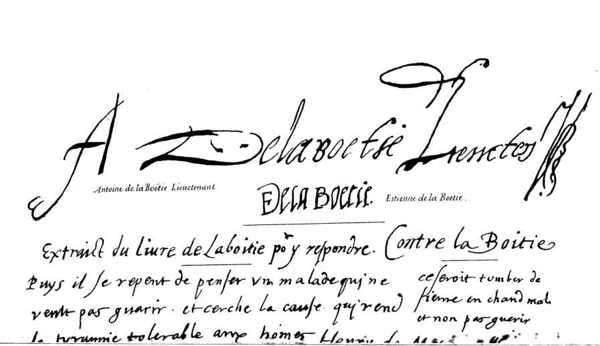 A Delaboetie Lieuctes
Antoine de la Boëtie Lieuctenant
DELABOETIE. Estienne de la Boetie.
Extraict du liure de Laboitie por y respondre. Contre la Boitie
Puys il se repent de penser vn malade qui ne
veult pas guarir. et cerche la cause qui rend
la tyrannie tolerable aux homes
ce seroit tumber de
fieure en chaud mal
et non pas guerir